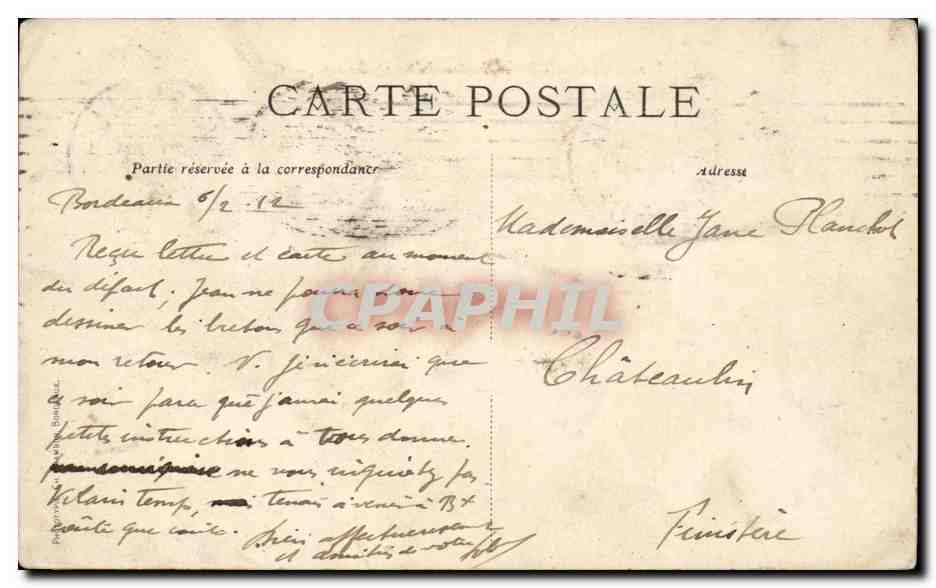 CARTE POSTALE
Partie réservée à la correspondance
Adresse
Bordeaux 6/2.12
Reçu lettre et carte au moment
du départ. Jean ne pourra donc
dessiner les bretons que ce soir à
mon retour. V. J'écrirai que
ce soir parce que j'aurai quelques
petites instructions à vous donner.
ne vous inquiétez pas.
Vilain temps, tenais à venir à Bx
coûte que coûte. Bien affectueuses
et amitiés de votre
Mademoiselle Jane Planchot
Châteaulin
Finistère
CPAPHIL
BORDEAUX.